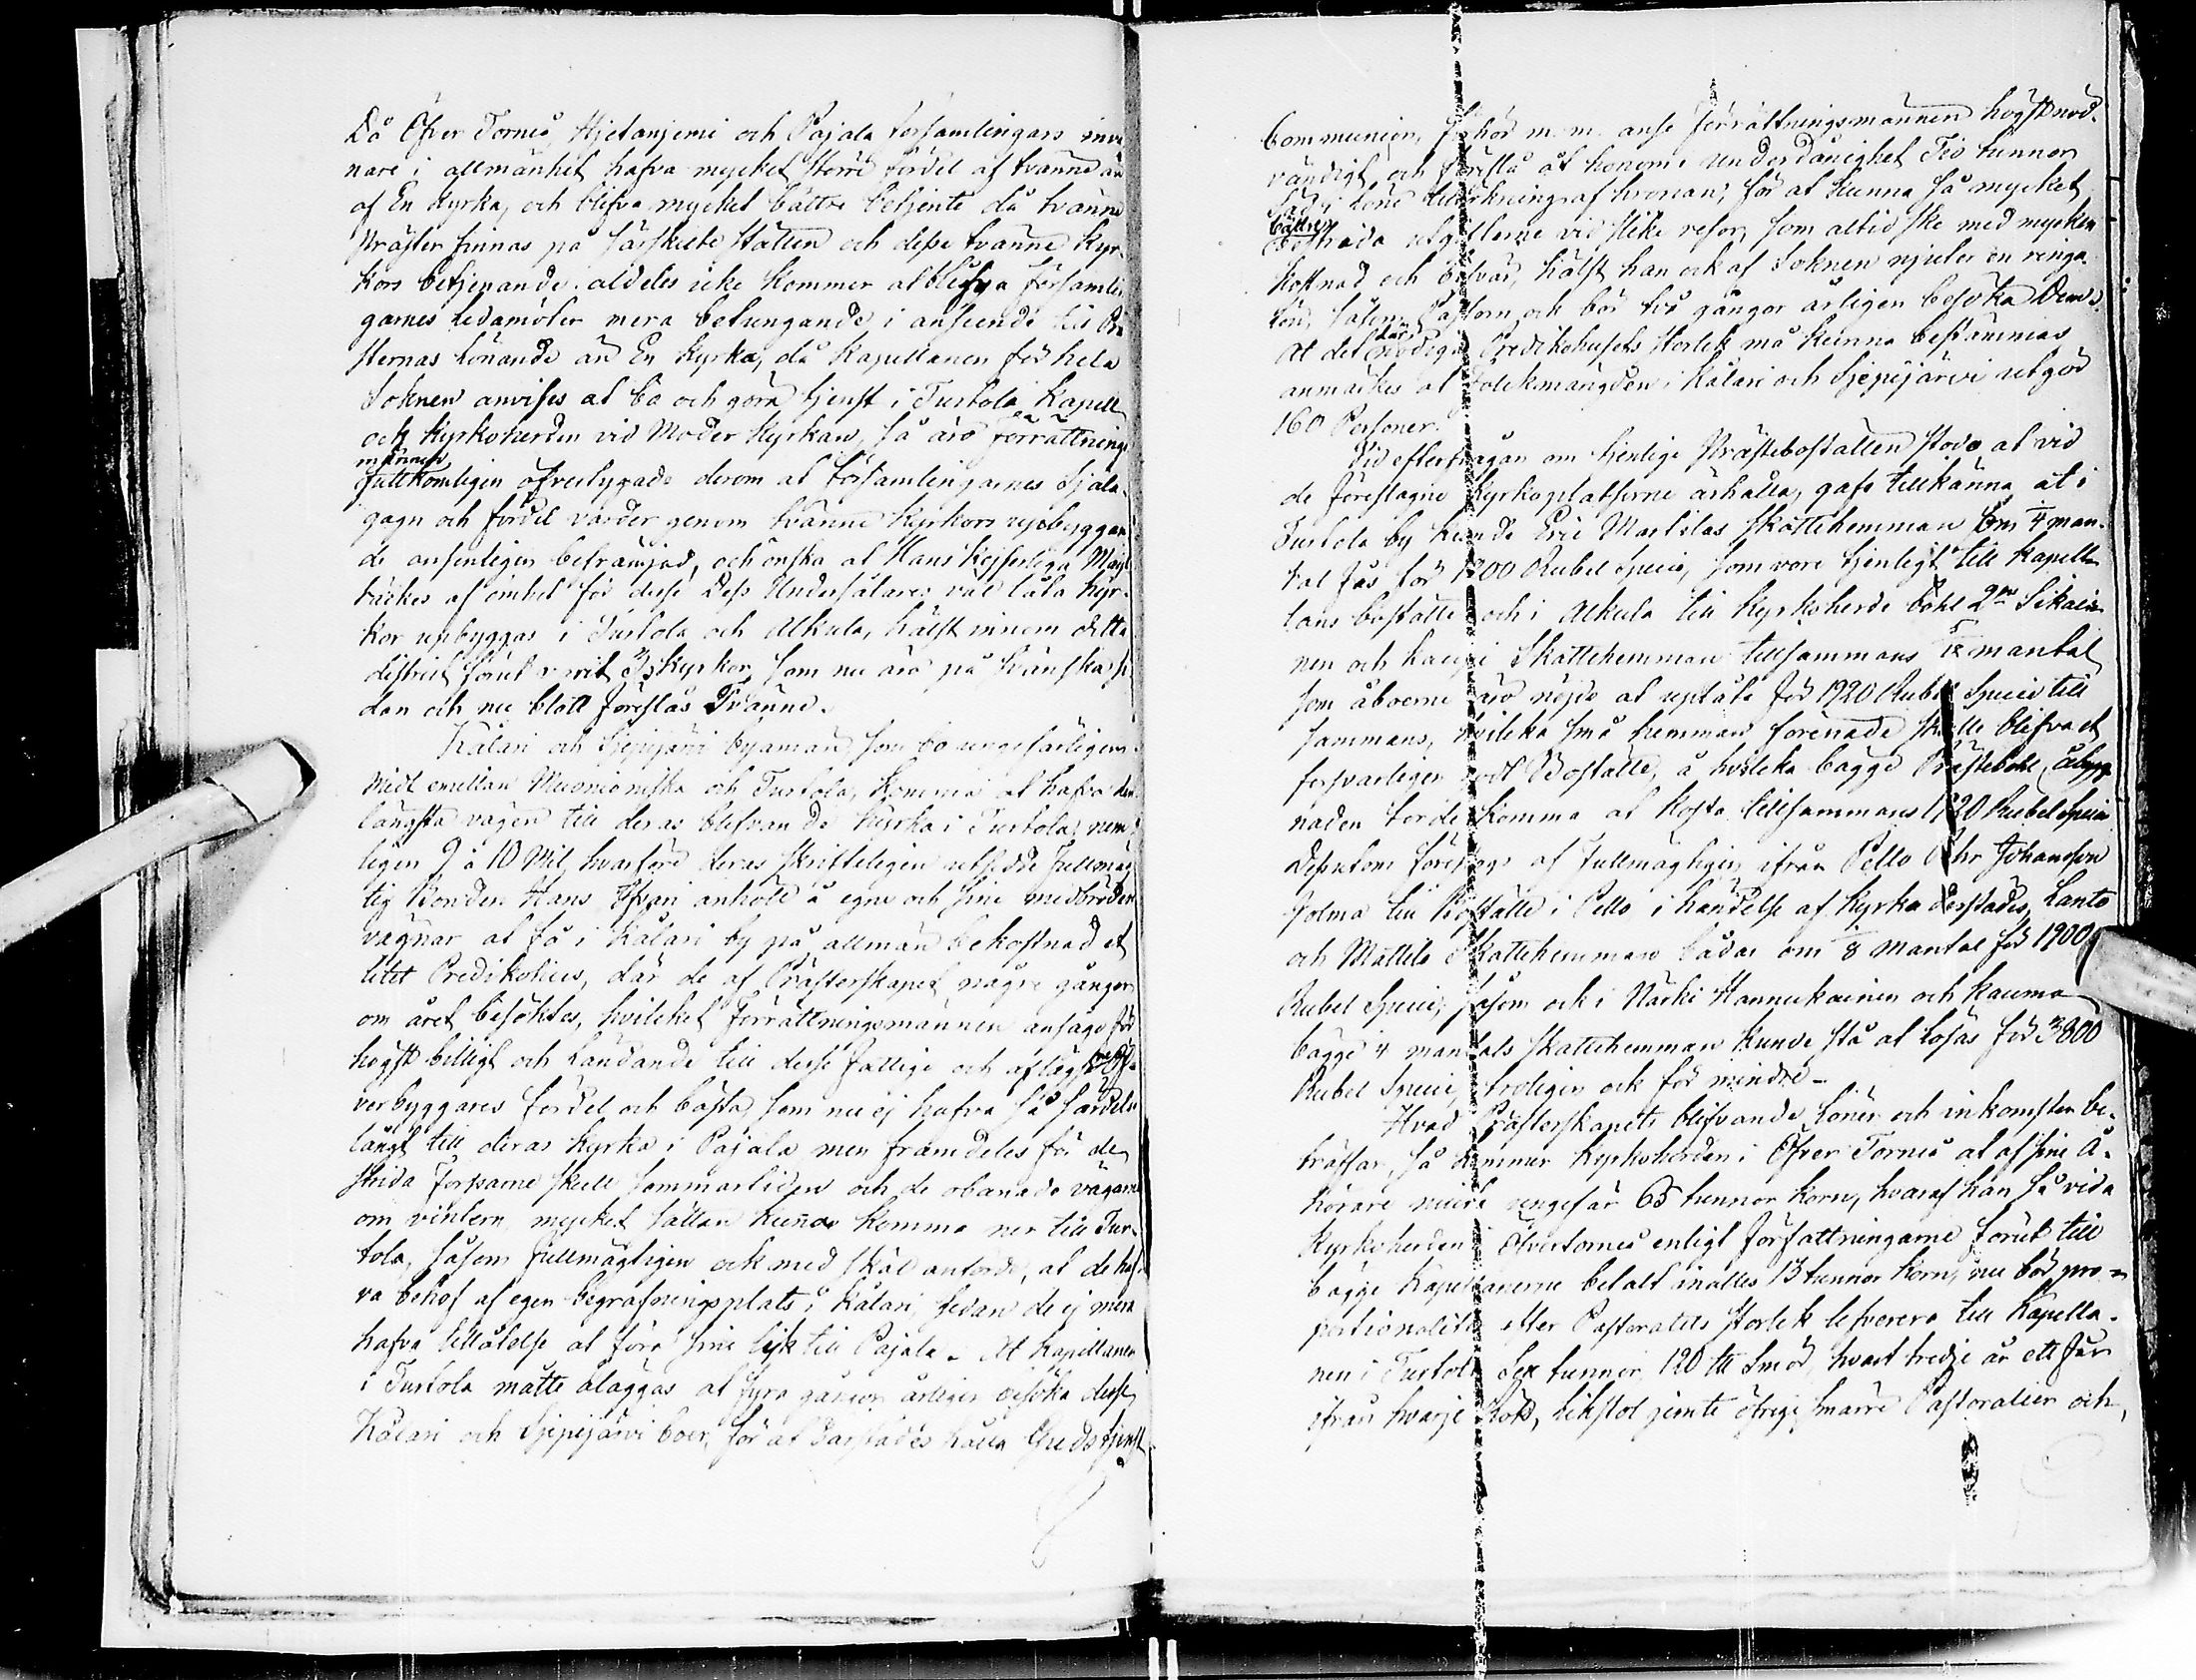 Då Öfver Torneå, Hjetanjemi och Pajala församlingars inve
nare i allmänhet hafva mycket större fördel af tvänne än
af En Kyrka, och blifva mycket bättre betjente då tvänne
Präster finnas på särskilte ställen och desse tvänne Kyr-
kors betjenande aldeles icke kommer at blifva församlin
garnes ledamöter mera betungande i anseende till Prä
sternas lönande än En Kyrka, då Kapellanen för hela
Soknen anvises at bo och göra tjenst i Turtola Kapell
och Kyrkoherden vid Moder Kyrkan, så äro Förrättnings
männen
fullkomligen öfvertygade derom at församlingarnes Själa-
gagn och fördel varder genom tvänne Kyrkors uppbyggan
de ansenligen befrämjad, och önska at Hans Kejserliga Maij:t
täckes af ömhet för desse Dess Undersåtare väl låta Kyr-
kor upbyggas i Turtola och Alkula, hälst innom detta
district förut varit 3 Kyrkor, som nu äro på Svenska si
dan och nu blott föreslås Tvänne.
Kålari och Sjepijärvi byamän, som bo ungefärligen
midt emellan Muonioniska och Turtola, komma at hafva den
längsta vägen till deras blifvande Kyrka i Turtola, nem
ligen 9 à 10 Mil, hvarföre deras skrifteligen utsedde fullmäg
tig Bonden Hans anhöll å egne och sine medbröders
vägnar at få i Kålari by på allmän bekostnad et
litet Predikohus, där de af Prästerskapet någre gånger
om året besöktes, hvilcket Förrättningsmännen ansågo för
högst billigt och ländande till desse fattige och aflägse
verbyggares fördel och bästa, som nu ej hafva så särdeles
långt till deras Kyrka i Pajala men framdeles för de
strida Forssarne skull sommartiden och de obanade vägarne
om vintern mycket sällan kunna komma ner till Tur-
tola, såsom fullmägtigen ock med skäl anförde, at de haf
va behof af egen begrafningsplats i Kålari, sedan de ej mera
hafva tillåtelse at föra sine Lijk till Pajala. At Kapellanen
i Turtola måtte åläggas at fyra gånger årligen besöka desse
Kålari och Sjepijärvi boer, för at därstädes hålla Gudstjenst
Communion, Förhör m. m. anse Förrättningsmännen högst nöd-
vändigt, och föreslå åt honom i underdånighet Tio tunnor
Säd i löne tillökning af Kronan, för at kunna så mycket
bättre
bestrida utgifterne vid slike resor, som altid ske med mycken
kostnad och besvär, hälst han ock af Soknen njuter en ringa
lön, såsom Pastorn ock bör två gånger årligen besöka Dem.
At det nödiga Predikohusets storlek må kunna bestämmas
anmärkes at Folckmängden i Kålari och Sjepijärvi utgör
160 Personer.
Vid efterfrågan om tjenlige Prästeboställen stodo at vid
de föreslagne Kyrkoplatserne ärhålla, gafs tillkänna at i
Turtola by kunde Eric Martilas Skattehemman om 1/4 man-
tal fås för 1200 Rubel Specie, som vore tjenligt till Kapell-
lans boställe och i Alkula till Kyrkoherde bohl 2:ne Sikain
nen och Kauppi Skattehemman tillsammans 5/12 mantal
som åboerne äro nöjde at uplåta för 1920 Rubel Specie till
sammans, hvilcka små hemman förenade skulle blifva et
försvarligen godt Boställe, å hvilcka bägge Prästebohl åbygg
naden torde komma at kosta tillsammans 1920 Rubel Specie
Dessutom föreslogs af fullmägtigen ifrån Pello Johansson
Jolma till Boställe i Pello i händelse af Kyrka därstädes, Lanto
och Mattila Skattehemman båda om 1/8 Mantal för 1900
Rubel Specie, såsom ock i Närki Hannukainen och Kauma
bägge 4 mantals Skattehemman kunde stå at lösas för 3800
Rubel Specie, troligen ock för mindre.
Hvad Prästerskapets blifvande Löner och inkomster be-
träffar, så kommer Kyrkoherden i Öfver Torneå at af sine Å-
hörare mista ungefär 65 tunnor Korn, hvaraf han så vida
Kyrkoherden i Öfvertorneå enligt författningarne förut till
bägge Kapellanerne betalt inalles 13 tunnor Korn, nu bör pro-
portionaliter efter Pastoratets storlek leverera till Kapella-
nen i Turtola Sex tunnor, 120 ℔ Smör, hvart tredje år ett Får
ifrån hvarje Rök, likstol jemte öfrige smärre Pastoralier och